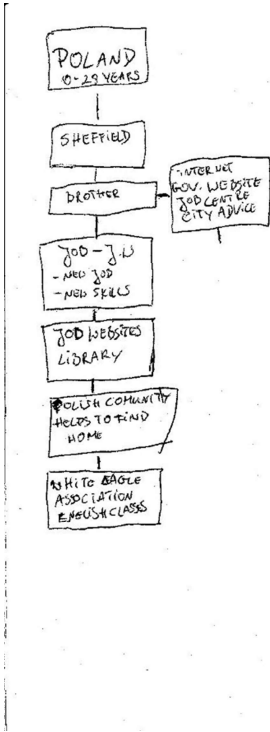 POLAND
0-29 YEARS
SHEFFIELD
BROTHER
INTERNET
GOV. WEBSITE
JOB CENTRE
CITY ADVICE
JOB -
- NEW JOB
- NEW SKILLS
JOB WEBSITES
LIBRARY
POLISH COMUNITY
HELPS TO FIND
HOME
WHITE EAGLE
ASSOCIATION
ENGLISH CLASSES